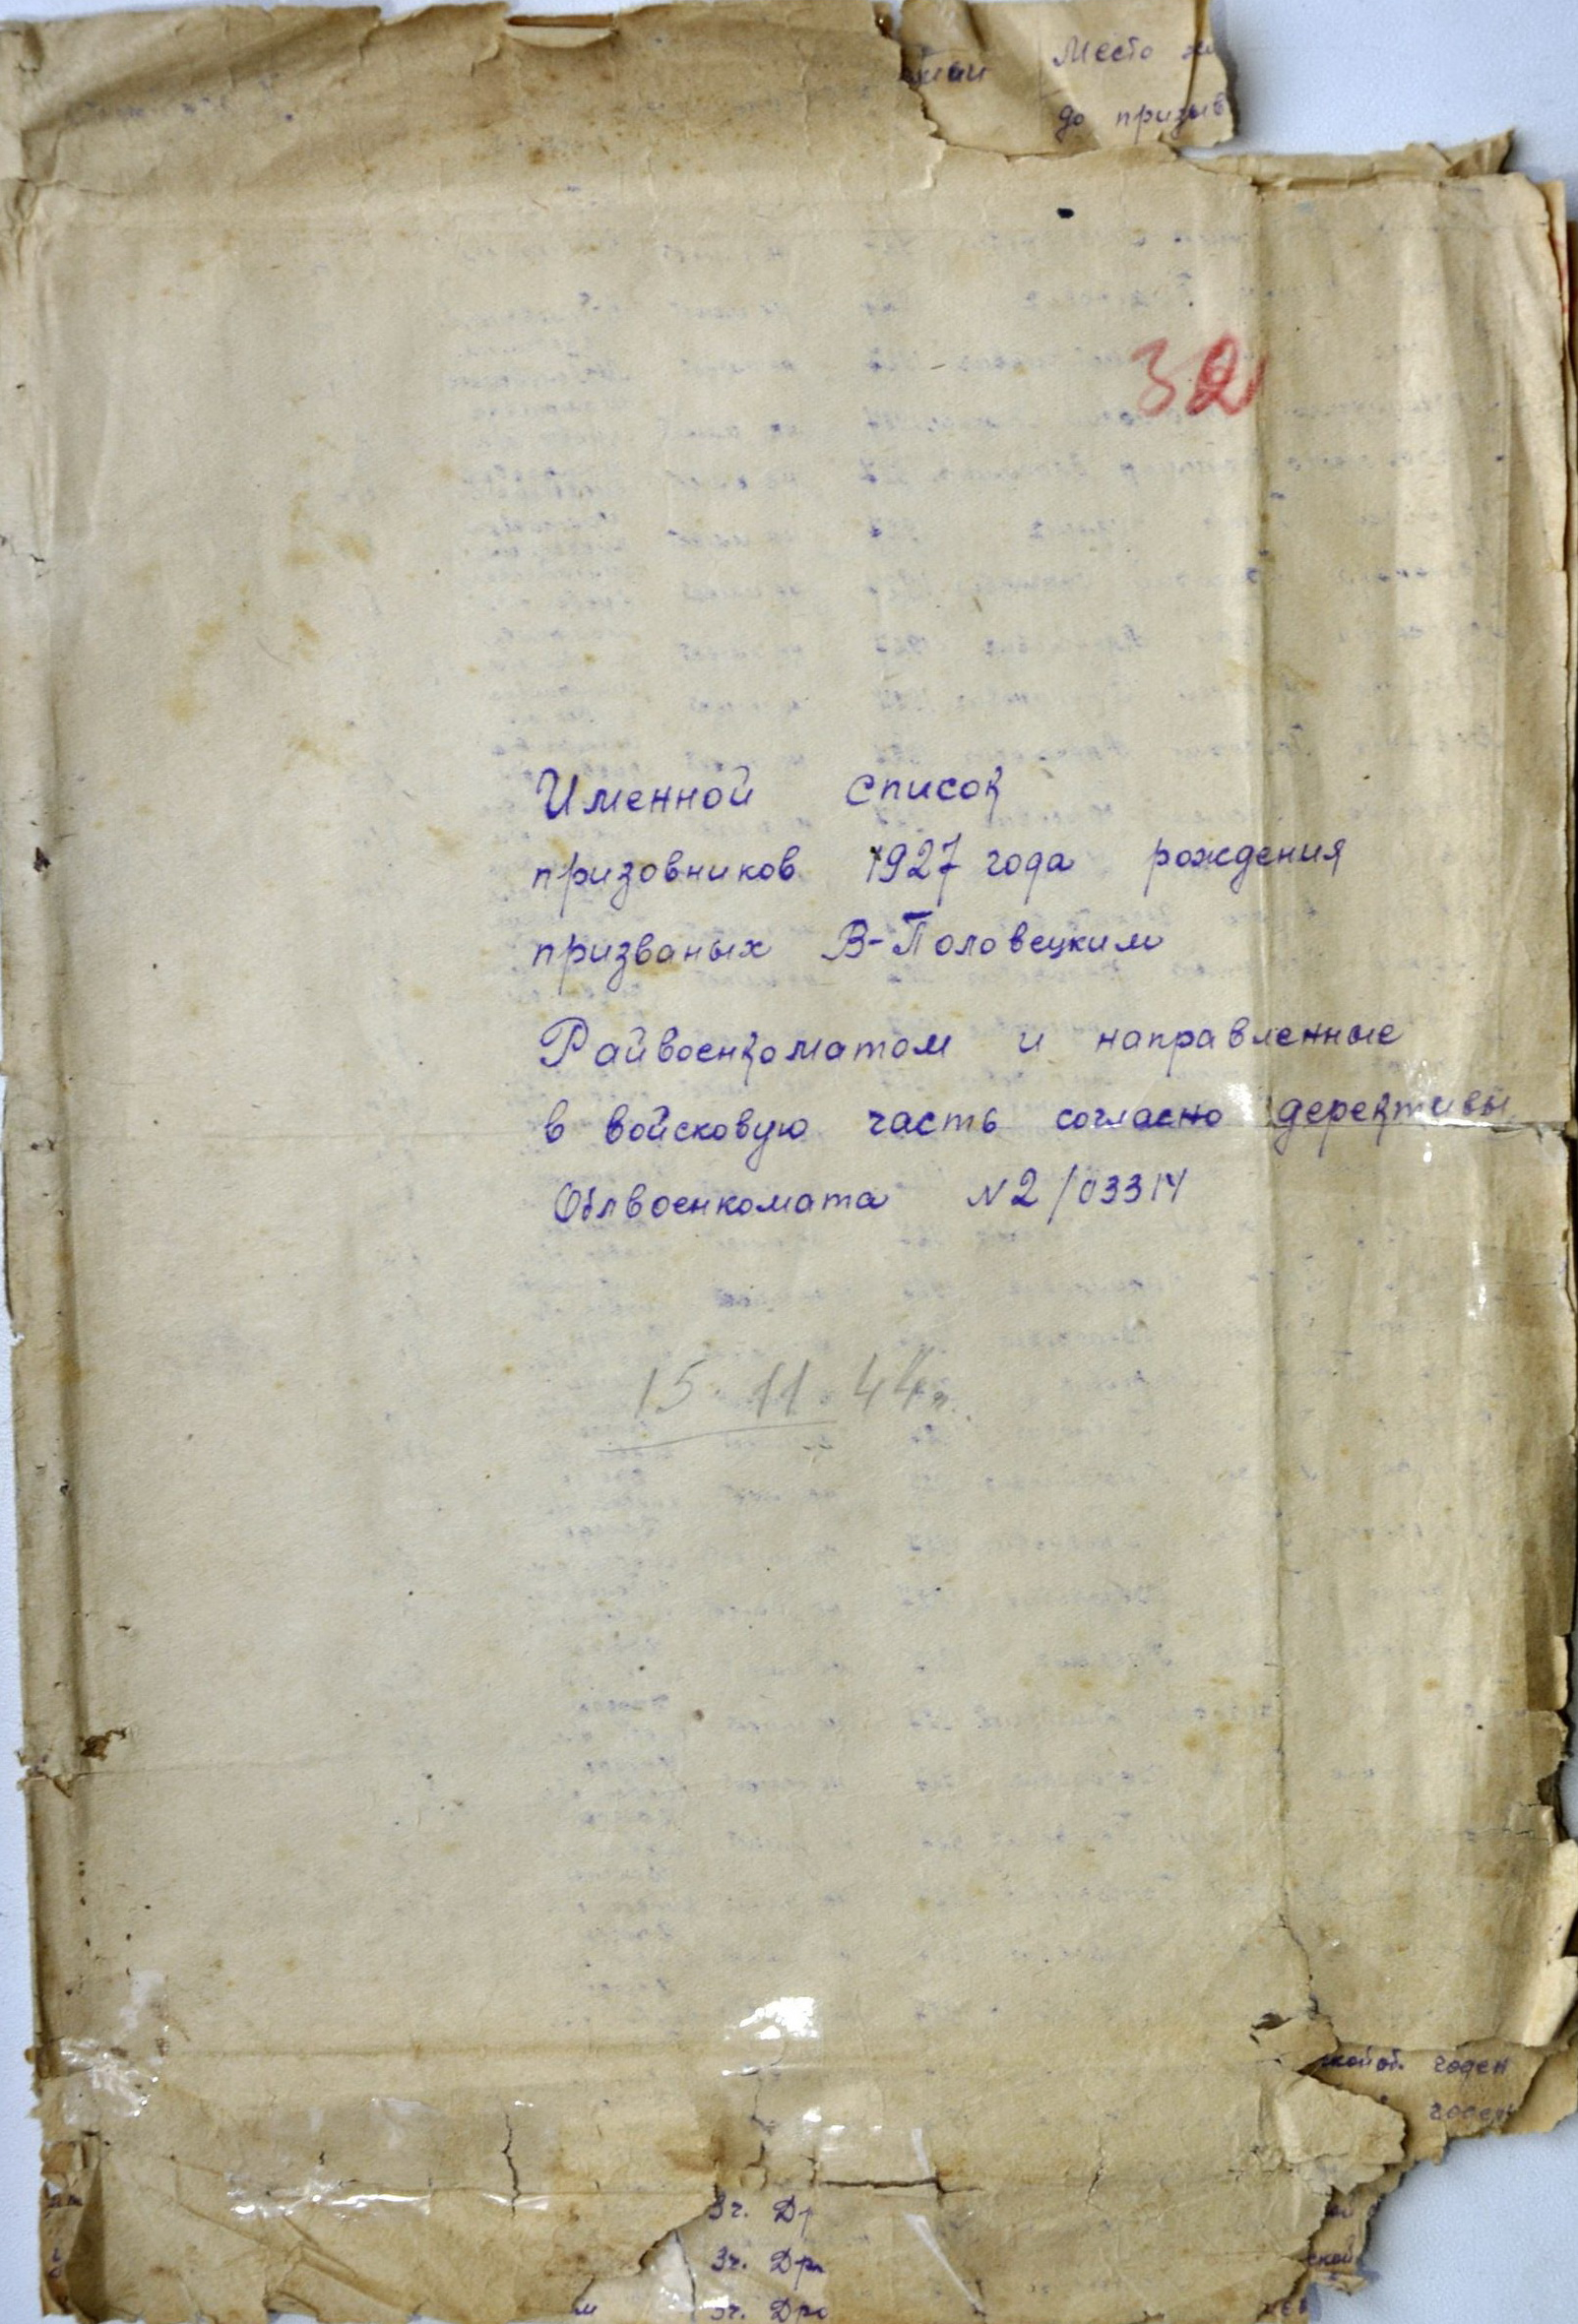 Место
до призыв
32
Именной список
призовников 1927 года рождения
призваных В-Половецким
Райвоенкоматом и направленные
в войсковую часть согласно дерективы
Облвоенкомата N2/03314
15.11.44г.
годен
годен
Зч. Др
Зч. Др
Зч. Дро